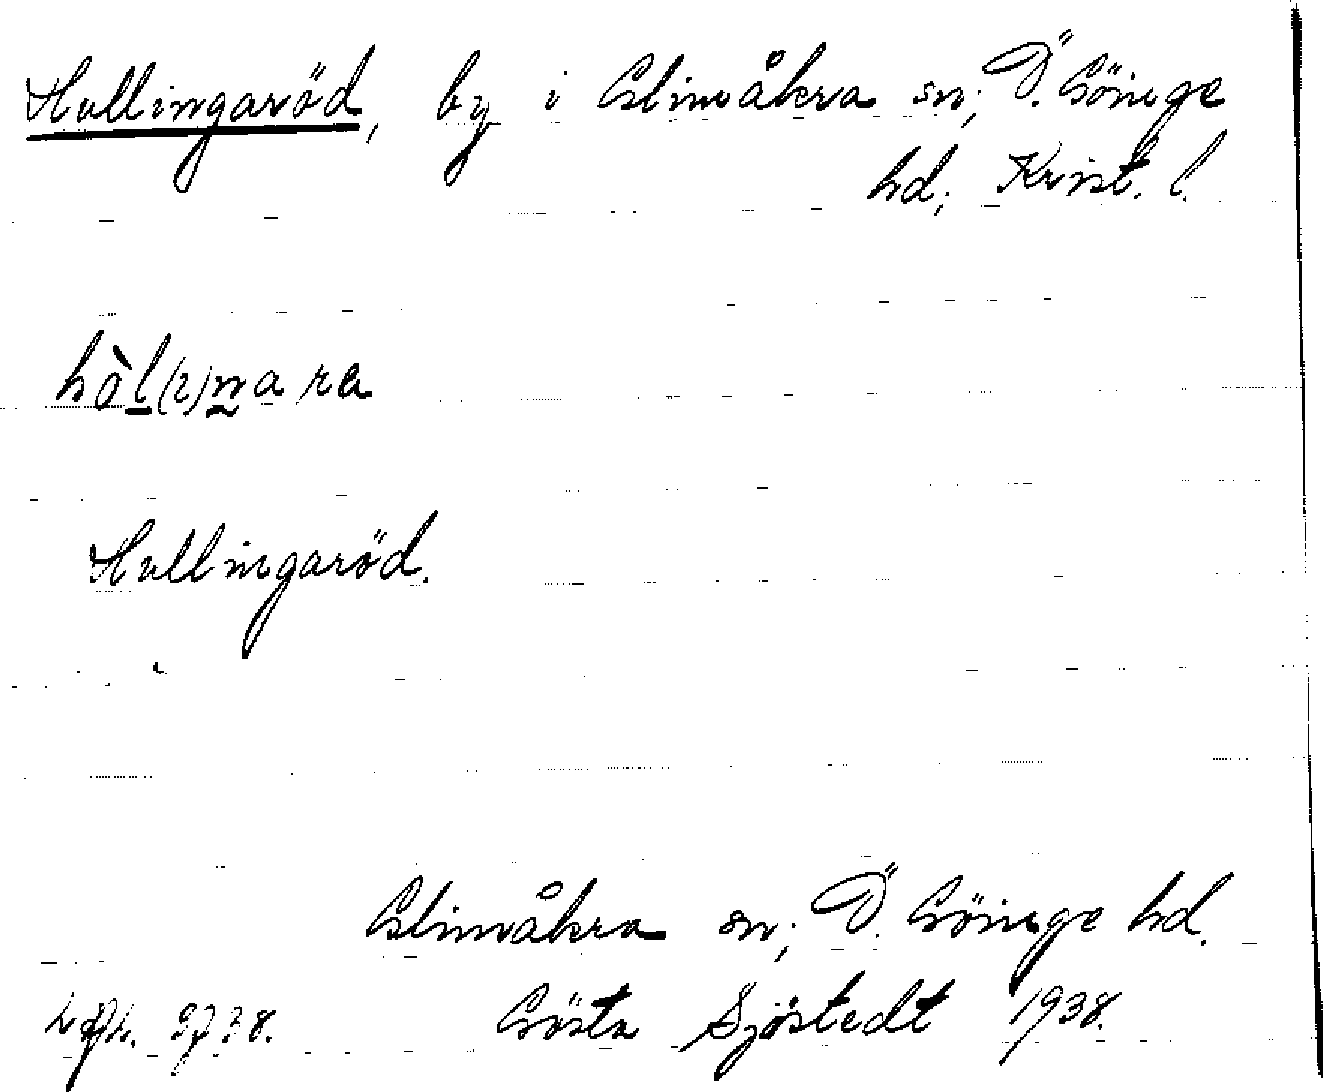 Hullingaröd, by i Glimåkra sn, Ö. Göinge
hd, Krist. l.
hòl(ı)nara
Hullingaröd.
Glimåkra sn, Ö. Göinge hd.
Gösta Sjöstedt 1938.